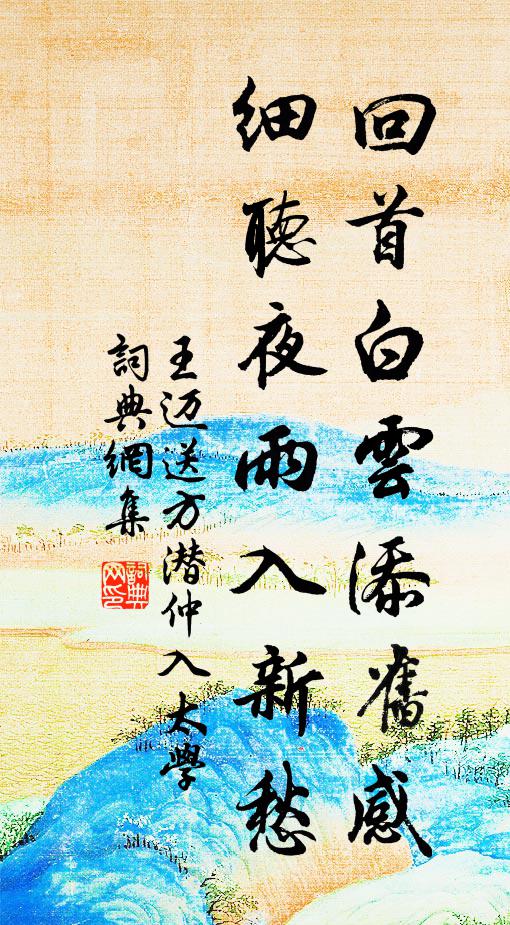 回首白雲添舊感
細聽夜雨入新愁
王迈送方潜仲入太學
詞典網集
詞典網印